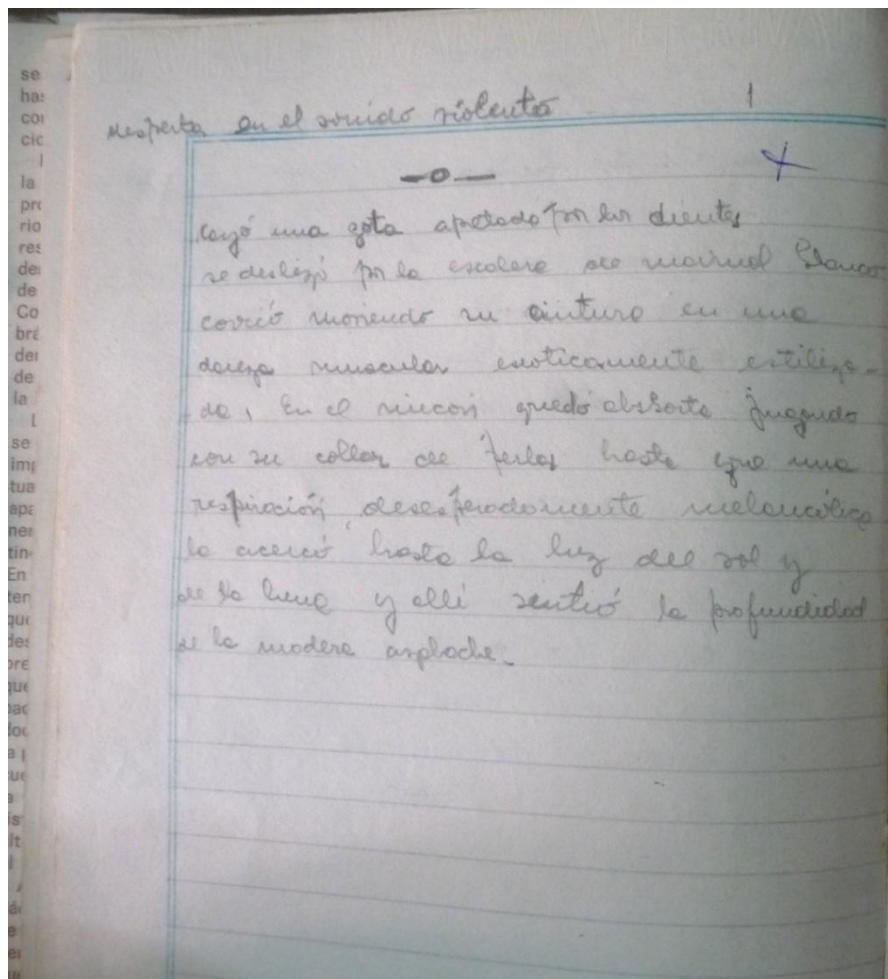 se
has
con
cic
l
la
pro
rio
res
de
Co
bra
de
la
se
imp
tua
apa
ner
tin
En
ten
que
des
pre
que
en el sonido violento
1
—o—
cayó una gota apretado por los dientes
se deslizó por la escalera de marmol blanco
corrió moviendo su cintura en una
danza muscular exoticamente estiliza-
da, En el rincon quedó absorta jugando
con su collar de perlas hasta que una
respiración, desesperadamente melancólica
la acercó hasta la luz del sol y
de la luna y alli sentió la profundidad
de la madera